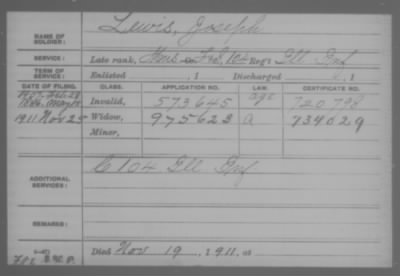 NAME OF SOLDIER: Lewis, Joseph
SERVICE: Late rank, F&S, 104 Reg't Ill Inf
TERM OF SERVICE: Enlisted , 1 Discharged , 1
DATE OF FILING. CLASS. APPLICATION NO. LAW. CERTIFICATE NO.
Invalid, 573645 age 720798
1911 Nov 25 Widow, 975623 a 734029
Minor,
ADDITIONAL SERVICES: C 104 Ill Inf
REMARKS:
Died Nov 19, 1911, at